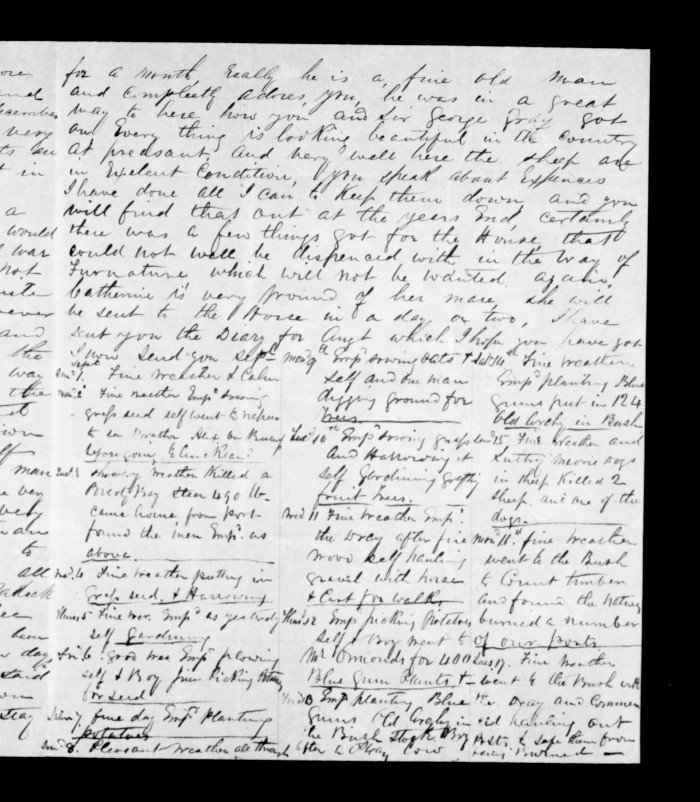 for a month really he is a fine old man
and compleatly adores you, he was in a great
way to here how you and Sir George Gray got
on Every thing is looking beautiful in the country
at preasant. and very well here the sheep are
in Exelent Condition, you speak about Expences
I have done all I can to keep them down and you
will find that out at the years End, certainly
there was a few things got for the House, that
could not well be dispenced with in the way of
Furnature which will not be wanted again,
Catherine is very pround of her mare, she will
be sent to the Horse in a day or two, I have
sent you the Diary for Augt which I hope you have got
I now send you Sept
Sun 1. Fine weather & Calm
Mon 2 Fine weather Emp sowing
grass seed self went to Napier
to see Brother Alex on Business
before going to Auckland
Tues 3 showery weather killed a
490 lb
came home from Port
found the men Emp as
above
Wed 4 Fine weather putting in
Grass seed, & Harrowing
Thurs 5 Fine wea. Emp as yesterday
self Gardening
Frid 6. good wea Emp plowing
self & Boy Picking Potatoes
for seed
Satur 7 fine day Emp Planting
potatoes
Sun 8. Pleasant weather all through
Mon 9th Emp sowing Oats &
self and one man
digging ground for
trees.
Tues 10th Emp sowing grass
and Harrowing it
self Gardining Grafting
fruit Trees.
Wed 11 Fine weather Emp
the Dray after fire
wood self hauling
gravel with horse
& Cart for walks
Thurs 12 Emp picking Potatoes
self & Boy went to
Mr Ormonds for 400
Blue Gum Plants &
Frid 13 Emp Planting Blue
Gums, Old Archy in
the Bush Stock & Boy
after a Stray Cow
Sat 14th Fine weather
Emp planting Blue
Gums put in 124
Old Archy in Bush
Sun 15 Fine weather and
Sultry Maorie dogs
in sheep killed 2
sheep, and one of the
dogs.
Mon 16th fine weather
went to the Bush
to Count timber
and found the Natives
burned a number
of our posts.
Tues 17. Fine weather
went to the Bush with
the Dray and Commen
ced hauling out
Posts to safe them from
being Burned
ore
and
December
very
in
a
would
war
not
ever
and
the
way
the
man
very
to
all
day
said
stay